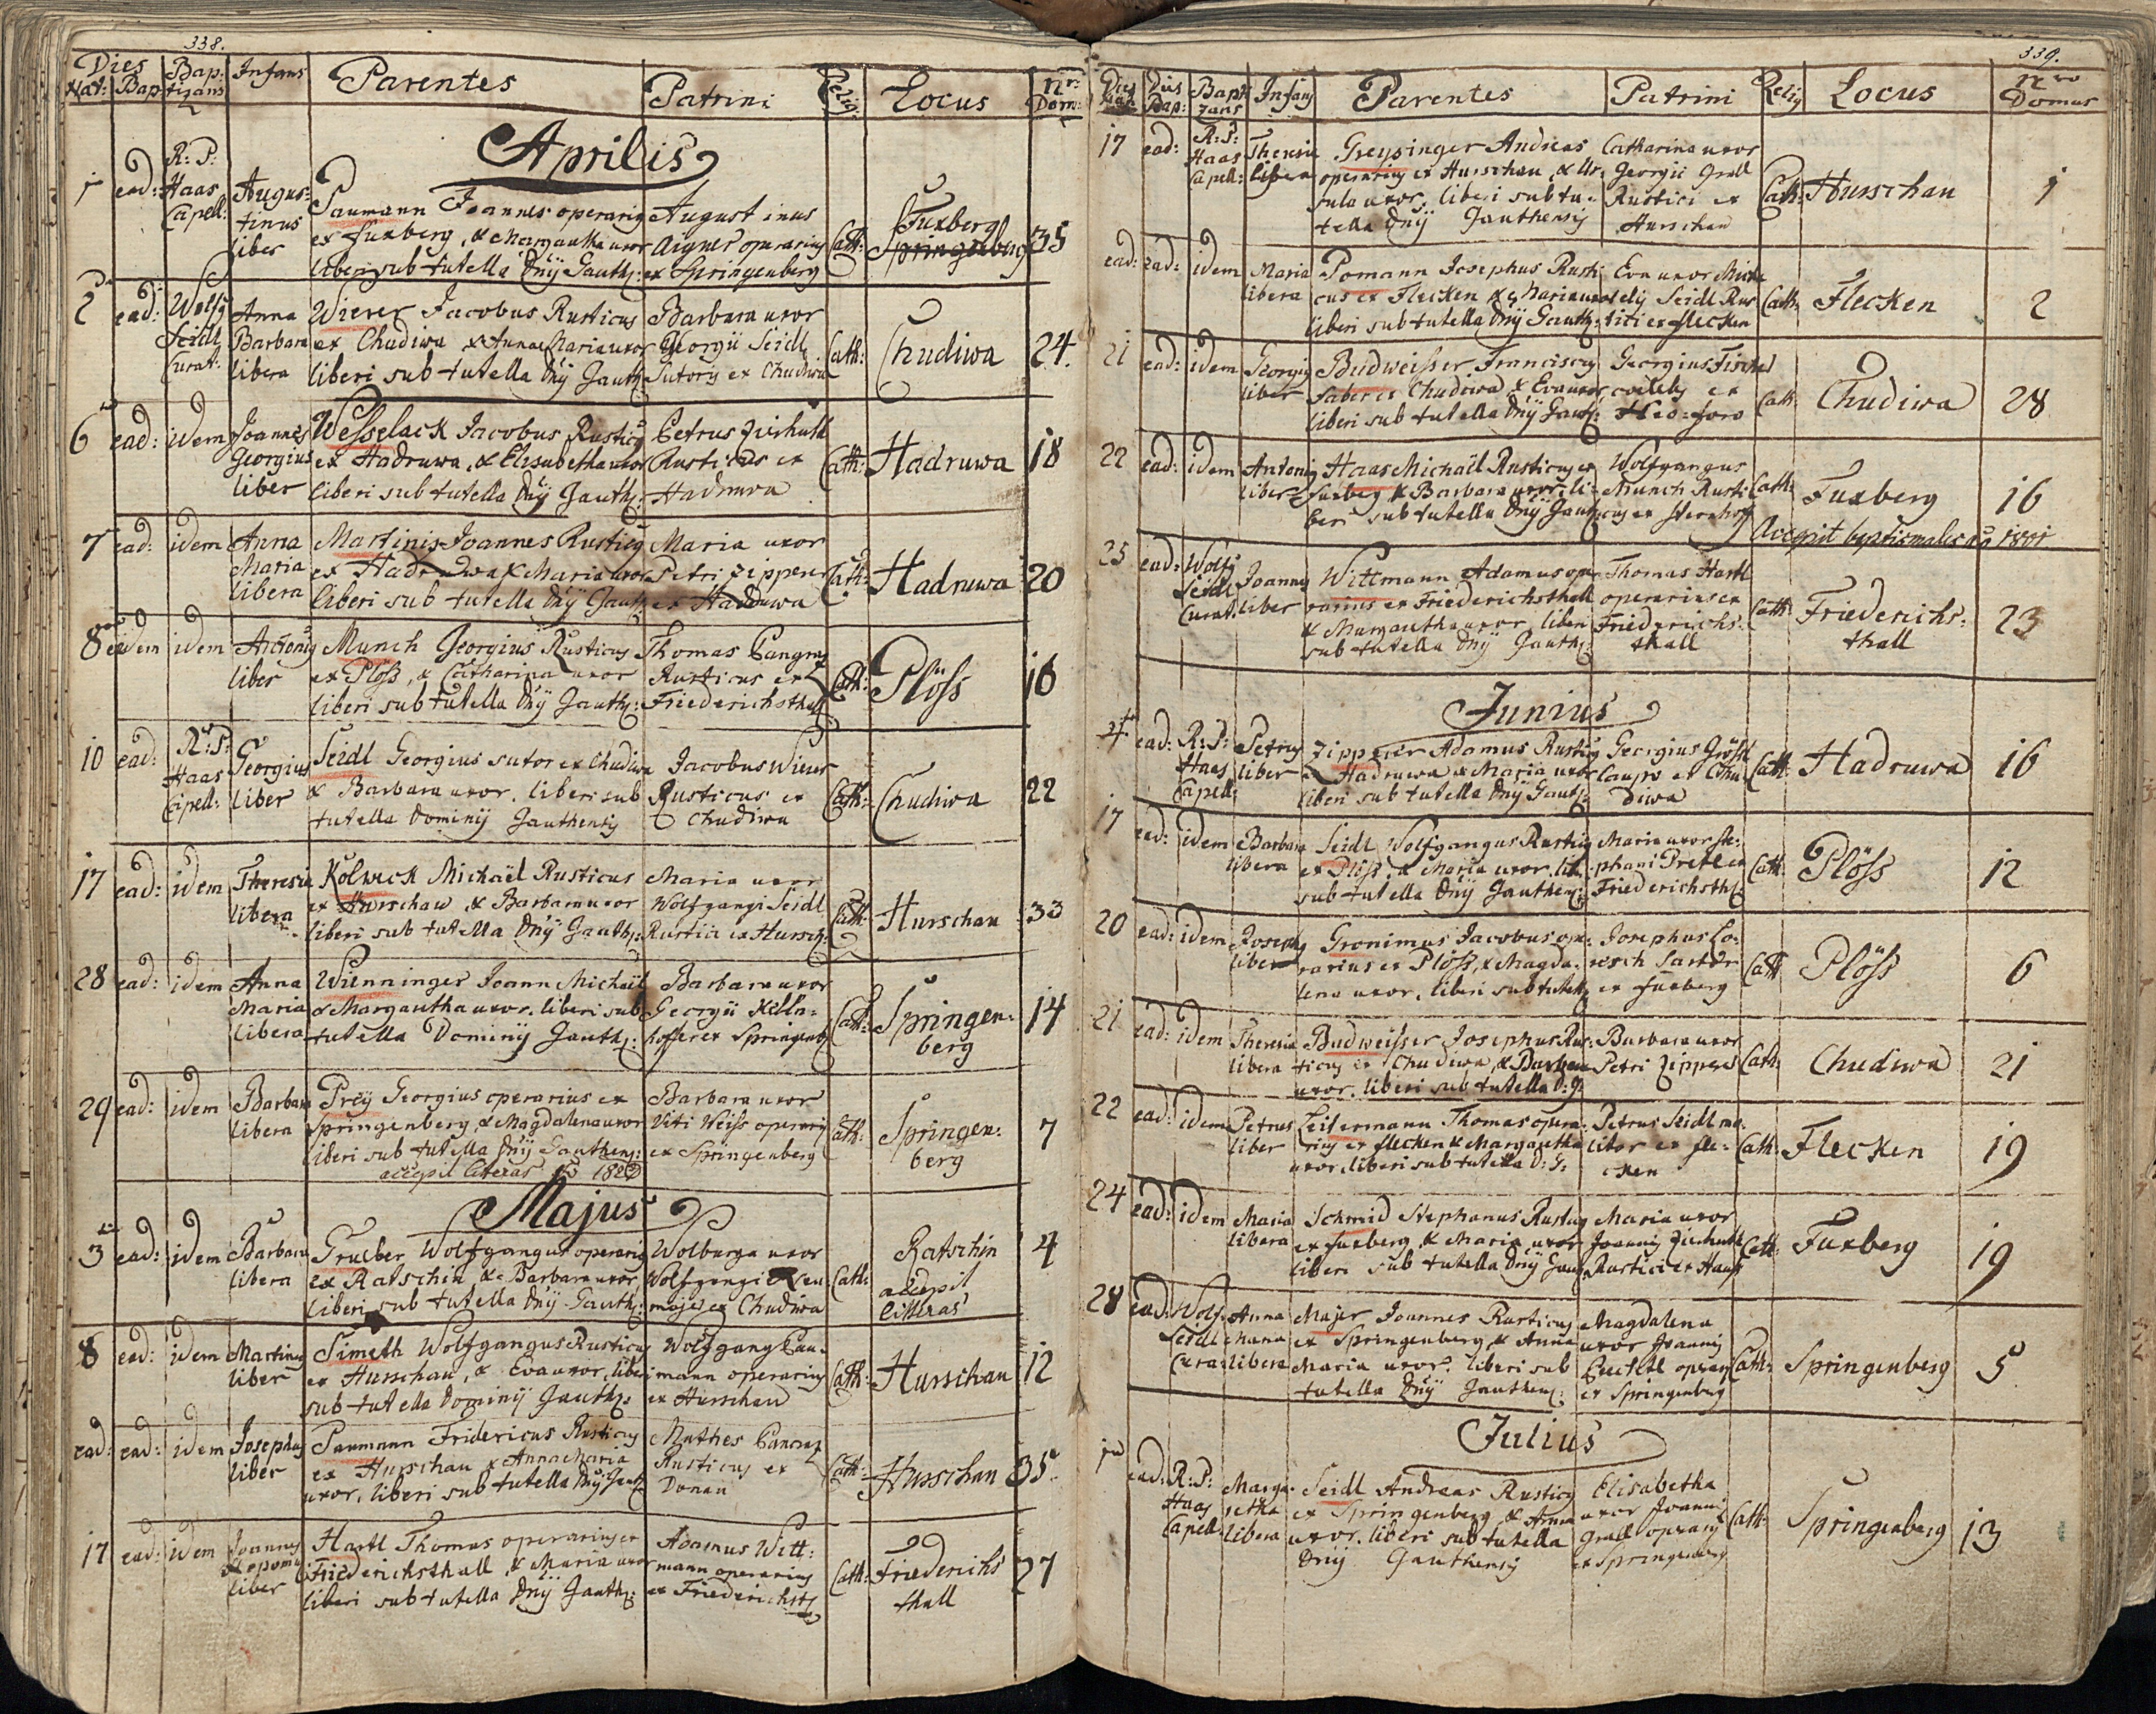 338.
Dies Nat: Bap: Baptizans Infans Parentes Patrini Relig: Locus Nr: Dom:
Aprilis
1 ead: R: P: Haas Capell: Augus=
tinus
liber
Paumann Joannes operarig
ex fuxberg, & Margaritha uxor
liberi sub tutella Dnÿ Gauth:
August inus
Aigner operarius
ex Springenberg
Cath: Fuxberg
Springenberg 35
2 ead: Wolfg Seidl Curat: Anna
Barbara
libera
Wierer Jacobus Rusticus
ex Chudiwa & Anna Maria uxor
liberi sub tutella Dnÿ Gauth
Barbara uxor
Georgii Seidl
Sutoris ex Chudiwa
Cath: Chudiwa 24.
6 ead: idem Joannes
Georgius
liber
Wesselack Jacobus Rusticg
ex Hadruwa, & Elisabetha uxor
liberi sub tutella Dnÿ Gauth:
Petrus
Rusticus ex
Hadruwa
Cath: Hadruwa 18
7 ead: idem Anna
Maria
libera
Martinis Joannes Rusticg
ex Hadruwa & Maria uxor
liberi sub tutella Dnÿ Gauth
Maria uxor
Petri Zipperer
ex Hadruwa
Cath: Hadruwa 20
8 eidem idem Antonig
liber
Munch Georgius Rusticus
ex Plöss, & Catharina uxor
liberi sub tutella Dnÿ Gauth:
Thomas Pangraz
Rusticus ex
Friederichsthall
Cath: Plöss 16
10 ead: R: P: Haas Capell: Georgius
liber
Seidl Georgius sutor ex Chudiwa
& Barbara uxor. liberi sub
tutella Dominÿ Gauthensÿ
Jacobus Wierer
Rusticus ex
Chudiwa
Cath: Chudiwa 22
17 ead: idem Theresia
libera
Kolbeck Michaël Rusticus
ex Hurschaw, & Barbara uxor
liberi sub tutella Dnÿ Gauth:
Maria uxor
Wolfgangi Seidl
Rustici ex Hursch:
Cath: Hurschau 33
28 ead: idem Anna
Maria
libera
Wienninger Joann Michaël
& Margaritha uxor. liberi sub
tutella Dominÿ Gauth:
Barbara uxor
Georgii Kelln=
hoffer ex Springenb
Cath: Springen=
berg 14
29 ead: idem Barbara
libera
Preÿ Georgius operarius ex
Springenberg, & Magdalena uxor
liberi sub tutella Dnÿ Gauthens:
accepit literas 18
Barbara uxor
Viti Weiss operarÿ
ex Springenberg
Cath: Springen=
berg 7
Majus
3 ead: idem Barbara
libera
Grueber Wolfgangus operarig
ex Ratschin, & Barbara uxor
liberi sub tutella Dnÿ Gauth:
Wolburga uxor
Wolfgangi Neu
majer ex Chudiwa
Cath: Ratschin
accepit
litteras 4
8 ead: idem Martinus
liber
Simeth Wolfgangus Rusticus
ex Hurschau, & Eva uxor, liberi
sub tutella Dominÿ Gauth:
Wolfgang Pau=
mann operarius
ex Hurschau
Cath: Hurschau 12
ead: ead: idem Josephus
liber
Paumann Fridericus Rusticus
ex Hurschau & Anna Maria
uxor, liberi sub tutella Dnÿ Gauth
Mathes Pancraz
Rusticus ex
Donau
Cath: Hurschau 35
17 ead: idem Joannes
Nepomu
liber
Hartl Thomas operarius ex
Friederichsthall, & Maria uxor
liberi sub tutella Dnÿ Gauth:
Adamus Witt=
mann operarius
ex Friederichst
Cath: Friederichs
thall 27
339.
Dies Nat: Dies Bap: Baptizans Infans Parentes Patrini Relig Locus Nro Domus
17 ead: R: P: Haas Capell: Theresia
libera
Greysinger Andreas
operarius ex Hurschau, & Ur=
sula uxor, liberi sub tu=
tella Dnÿ Gauthensÿ
Catharina uxor
Georgii Grall
Rustici ex
Hurschau
Cath: Hurschau 1
ead: ead: idem Maria
libera
Pomann Josephus Rusti
cus ex Flecken & Maria uxor
liberi sub tutella Dnÿ Gauth:
Eva uxor Micha
elis Seidl Rus
tici ex flecken
Cath: Flecken 2
21 ead: idem Georgig
liber
Budweisser Franciscus
Faber ex Chudiwa & Eva uxor
liberi sub tutella Dnÿ Gauth:
Georgius Fischel
coelebs ex
Neo=foro
Cath: Chudiwa 28
22 ead: idem Antonig
liber
Haas Michaël Rusticus ex
Fuxberg & Barbara uxor, li=
beri sub tutella Dnÿ Gauth
Wolfgangus
Munch Rusti
cus ex Sternhof
Cath: Fuxberg 16
Accepit baptismales
25 ead: Wolfg Seidl Curat. Joannes
liber
Wittmann Adamus ope
rarius ex Friederichsthall
& Margaritha uxor, liberi
sub tutella Dnÿ Gauth:
Thomas Hartl
operarius ex
Friederichs=
thall
Cath: Friederichs=
thall 23
Junius
4 ead: R: P: Haas Capell: Petrus
liber
Zipperer Adamus Rusticg
ex Hadruwa & Maria uxor
liberi sub tutella Dnÿ Gauth:
Georgius Grössl
Caupo ex Chu
diwa
Cath Hadruwa 16
17 ead: idem Barbara
libera
Seidl Wolfgangus Rusticg
ex Plöss, & Maria uxor. lib.
sub tutella Dnÿ Gauthens:
Maria uxor Ste=
phani Pretl ex
Friederichsth
Cath: Plöss 12
20 ead: idem Josephus
liber
Gronimus Jacobus ope=
rarius ex Plöss, & Magda=
lena uxor, liberi sub tutella
Josephus Lo=
resch Sartor
ex Fuxberg
Cath Plöss 6
21 ead: idem Theresia
libera
Budweisser Josephus Rus=
ticus ex Chudiwa, & Barbara
uxor. liberi sub tutella D: G.
Barbara uxor
Petri Zipperer
Cath: Chudiwa 21
22 ead: idem Petrus
liber
Leitermann Thomas opera=
rius ex flecken & Margaritha
uxor, liberi sub tutella D: G:
Petrus Seidl mo=
litor ex fle=
cken
Cath: Flecken 19
24 ead: idem Maria
libera
Schmid Stephanus Rusticus
ex fuxberg, & Maria uxor
liberi sub tutella Dnÿ Gauth
Maria uxor
Joannis
Rustici ex
Cath: Fuxberg 19
28 ead: Wolf. Seidl Curat Anna
Maria
libera
Majer Joannes Rusticus
ex Springenberg, & Anna
Maria uxor. liberi sub
tutella Dnÿ Gauthens:
Magdalena
uxor Joannis
operarÿ
ex Springenberg
Cath: Springenberg 5
Julius
1 ead: R: P: Haas Capell: Marga=
retha
libera
Seidl Andreas Rusticg
ex Springenberg, & Anna
uxor. liberi sub tutella
Dnÿ Gauthensÿ
Elisabetha
uxor Joannis
Grall operarÿ
ex Springenberg
Cath: Springenberg 13